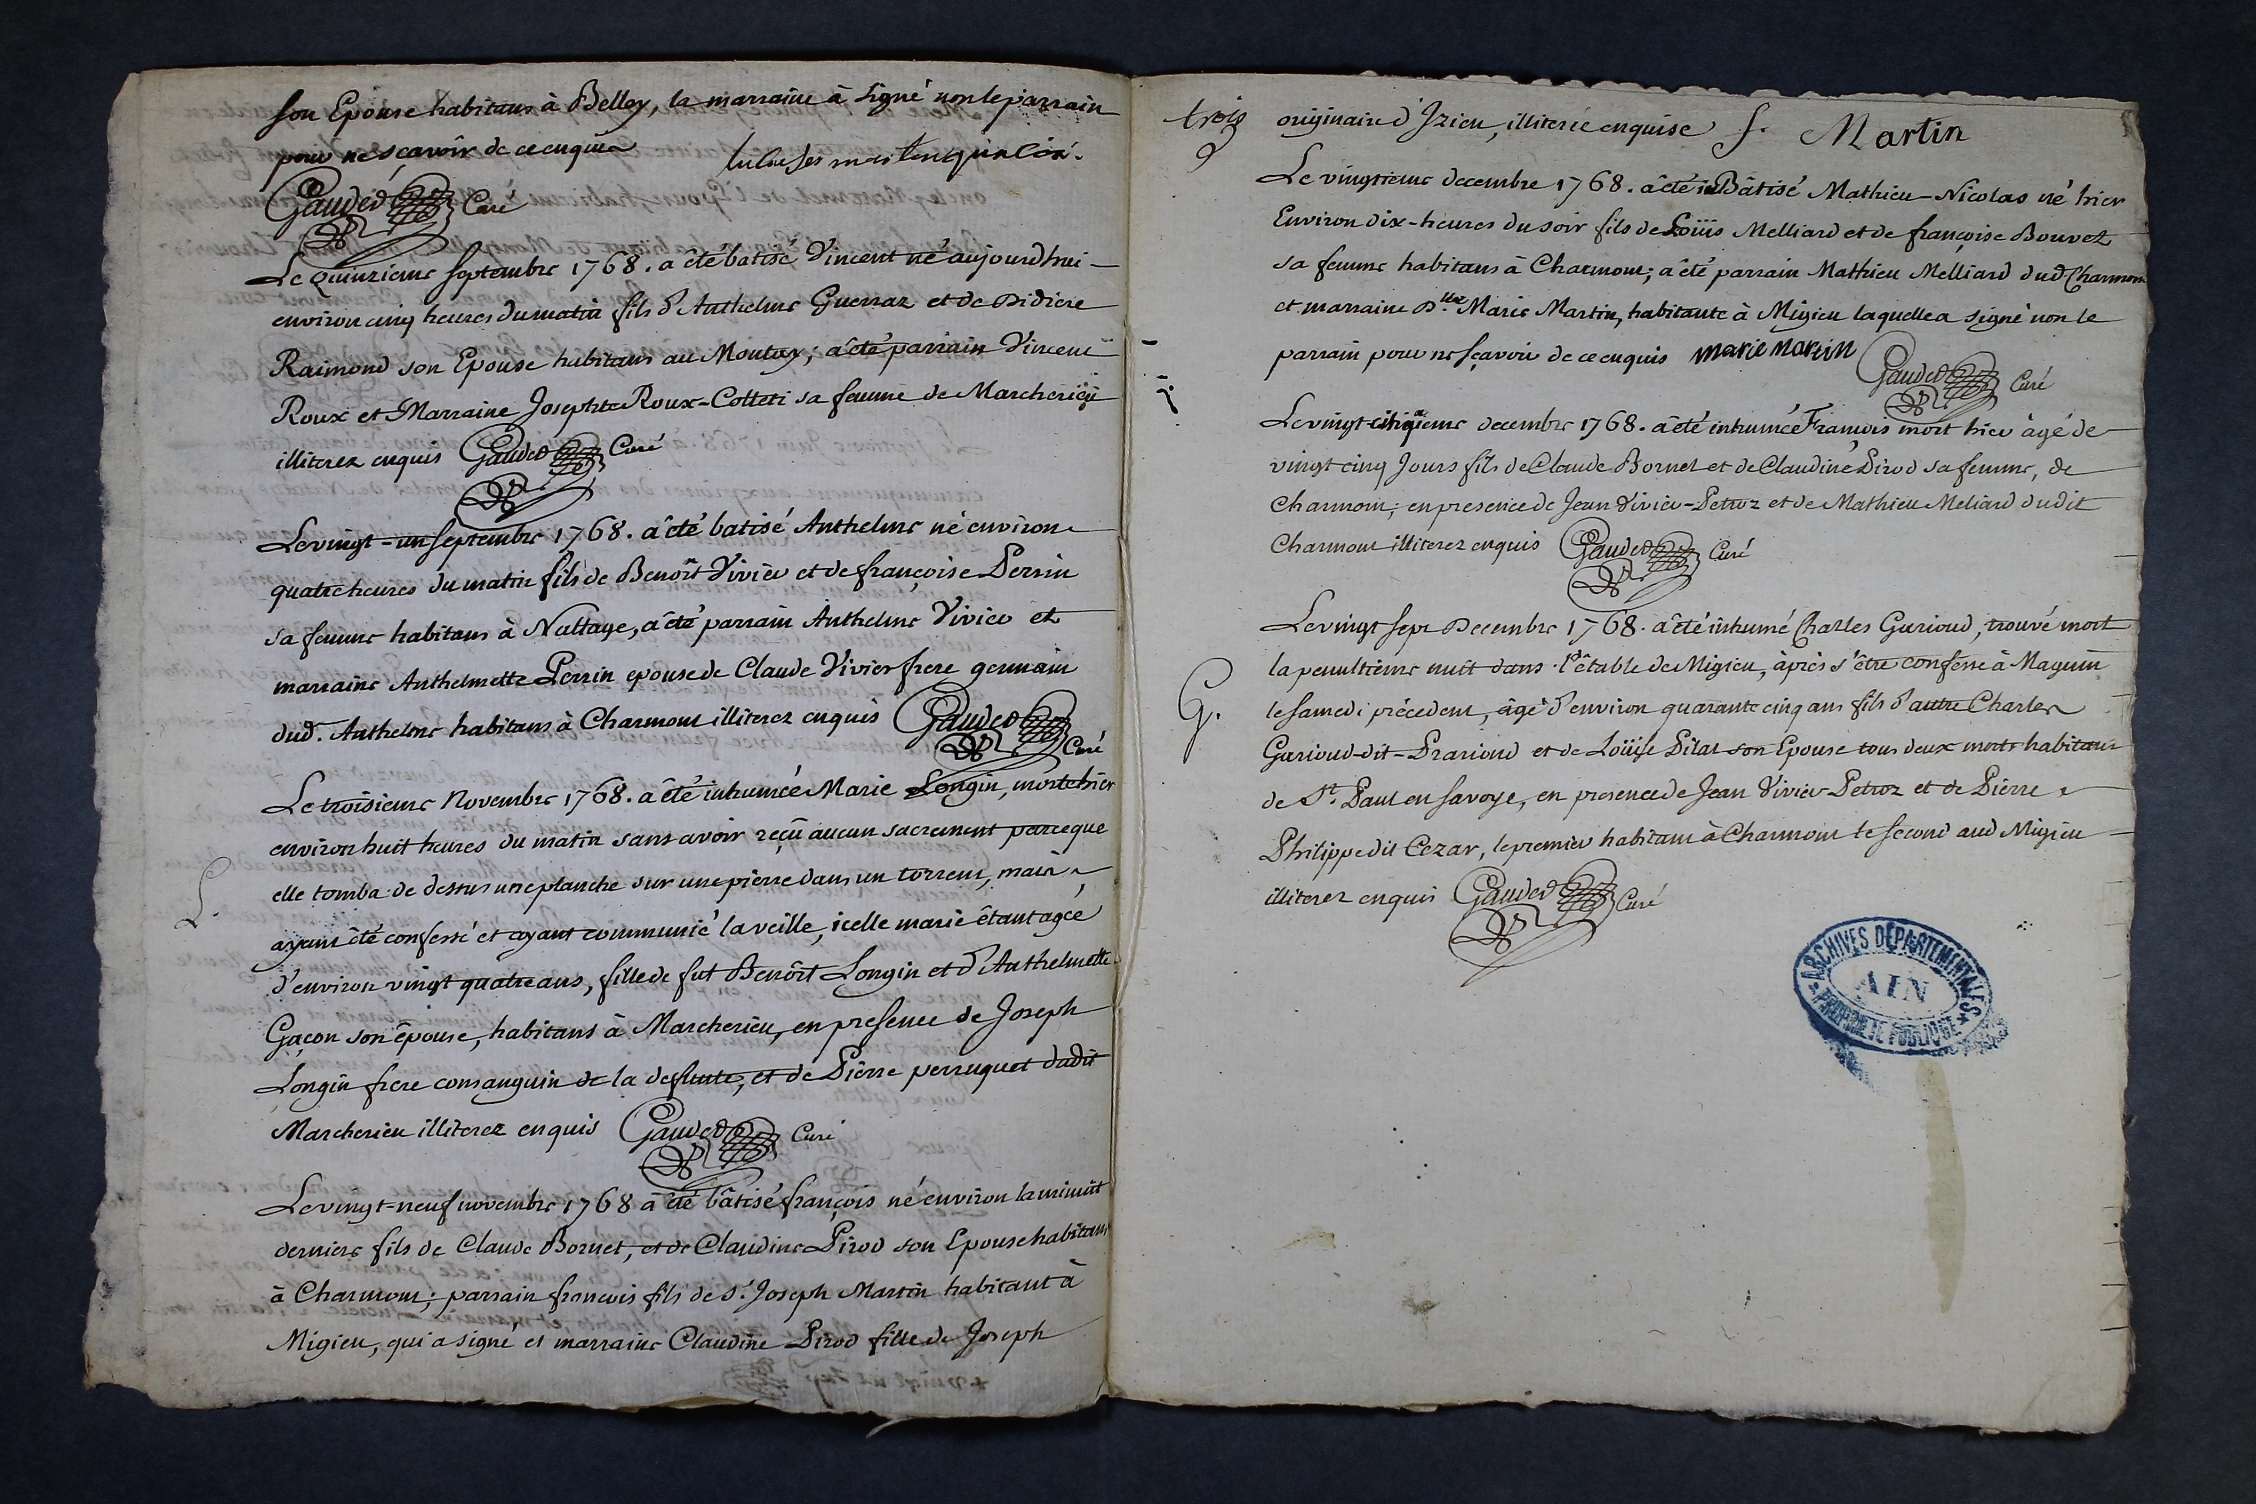 son Epouse habitans à Belley, la marraine à signé non le parrain
pour ne sçavoir de ce enquis
Gauded Curé
Le Quinzieme septembre 1768. a êté batisé Vincent né aujourdhui
environ cinq heures du matin fils d'Anthelme Guerraz et de Didiere
Raimond son Epouse habitans au Moutay; a êté parrain Vincent
Roux et Marraine Josephte Roux-Colleti sa femme de Marcherieu
illiterez enquis Gauded Curé
Le vingt-un septembre 1768. a êté batisé Anthelme né environ
quatre heures du matin fils de Benoît Vivier et de françoise Perrin
sa femme habitans à Nattage, a êté parrain Anthelme Vivier et
marraine Anthelmette Perrin epouse de Claude Vivier frere germain
dud. Anthelme habitans à Charmont illiterez enquis Gauded
Curé
Le troisieme Novembre 1768. a êté inhumée Marie Longin, morte hier
environ huit heures du matin sans avoir reçû aucun sacrement parceque
elle tomba de dessus une planche sur une pierre dans un torrent, mais
L.
ayant êté confessé et ayant communié la veille, icelle marie êtant agée
d'environ vingt quatre ans, fille de fut Benoît Longin et d'Anthelmette
Gaçon son épouse, habitans à Marcherieu, en presence de Joseph
Longin frere consanguin de la defunte, et de Pierre perruquet dudit
Marcherieu illiterez enquis Gauded Curé
Le vingt-neuf novembre 1768 a êté bâtisé françois né environ la minuit
derniere fils de Claude Bornet, et de Claudine Pirod son Epouse habitans
à Charmont; parrain françois fils de s.r Joseph Martin habitant à
Migieu, qui a signé et marraine Claudine Pirod fille de Joseph
trois
originaire d'Izieu, illiterée enquise f. Martin
Le vingtieme decembre 1768. a êté Bâtisé Mathieu-Nicolas né hier
Environ dix-heures du soir fils de Loüis Melliard et de françoise Bouvet
sa femme habitans à Charmont; a êté parrain Mathieu Melliard dud. Charmont
et marraine D.lle Marie Martin, habitante à Migieu laquelle a signé non le
parrain pour ne sçavoir de ce enquis marie martin
Gauded Curé
Le vingt-cinqieme decembre 1768. a êté inhumée François mort hier âgé de
vingt cinq Jours fils de Claude Bornet et de Claudine Pirod sa femme, de
Charmont; en presence de Jean Vivier-Petroz et de Mathieu Meliard dudit
Charmont illiterez enquis Gauded Curé
Le vingt sept Decembre 1768. a êté inhumé Charles Gurioud, trouvé mort
la penultieme nuit dans l'êtable de Migieu, àprès s'être confessé à Magnin
G.
le samedi précedent, âgé d'environ quarante cinq ans fils d'autre Charles
Gurioud-dit-Prarioud et de Loüise Pilat son Epouse tous deux morts habitans
de St. Paul en Savoye, en presence de Jean Vivier-Petroz et de Pierre
Philippe dit Cezar, le premier habitant à Charmont le second aud Migieu
illiterez enquis Gauded Curé
ARCHIVES DÉPARTEMENTALES
AIN
PROPRIÉTÉ PUBLIQUE